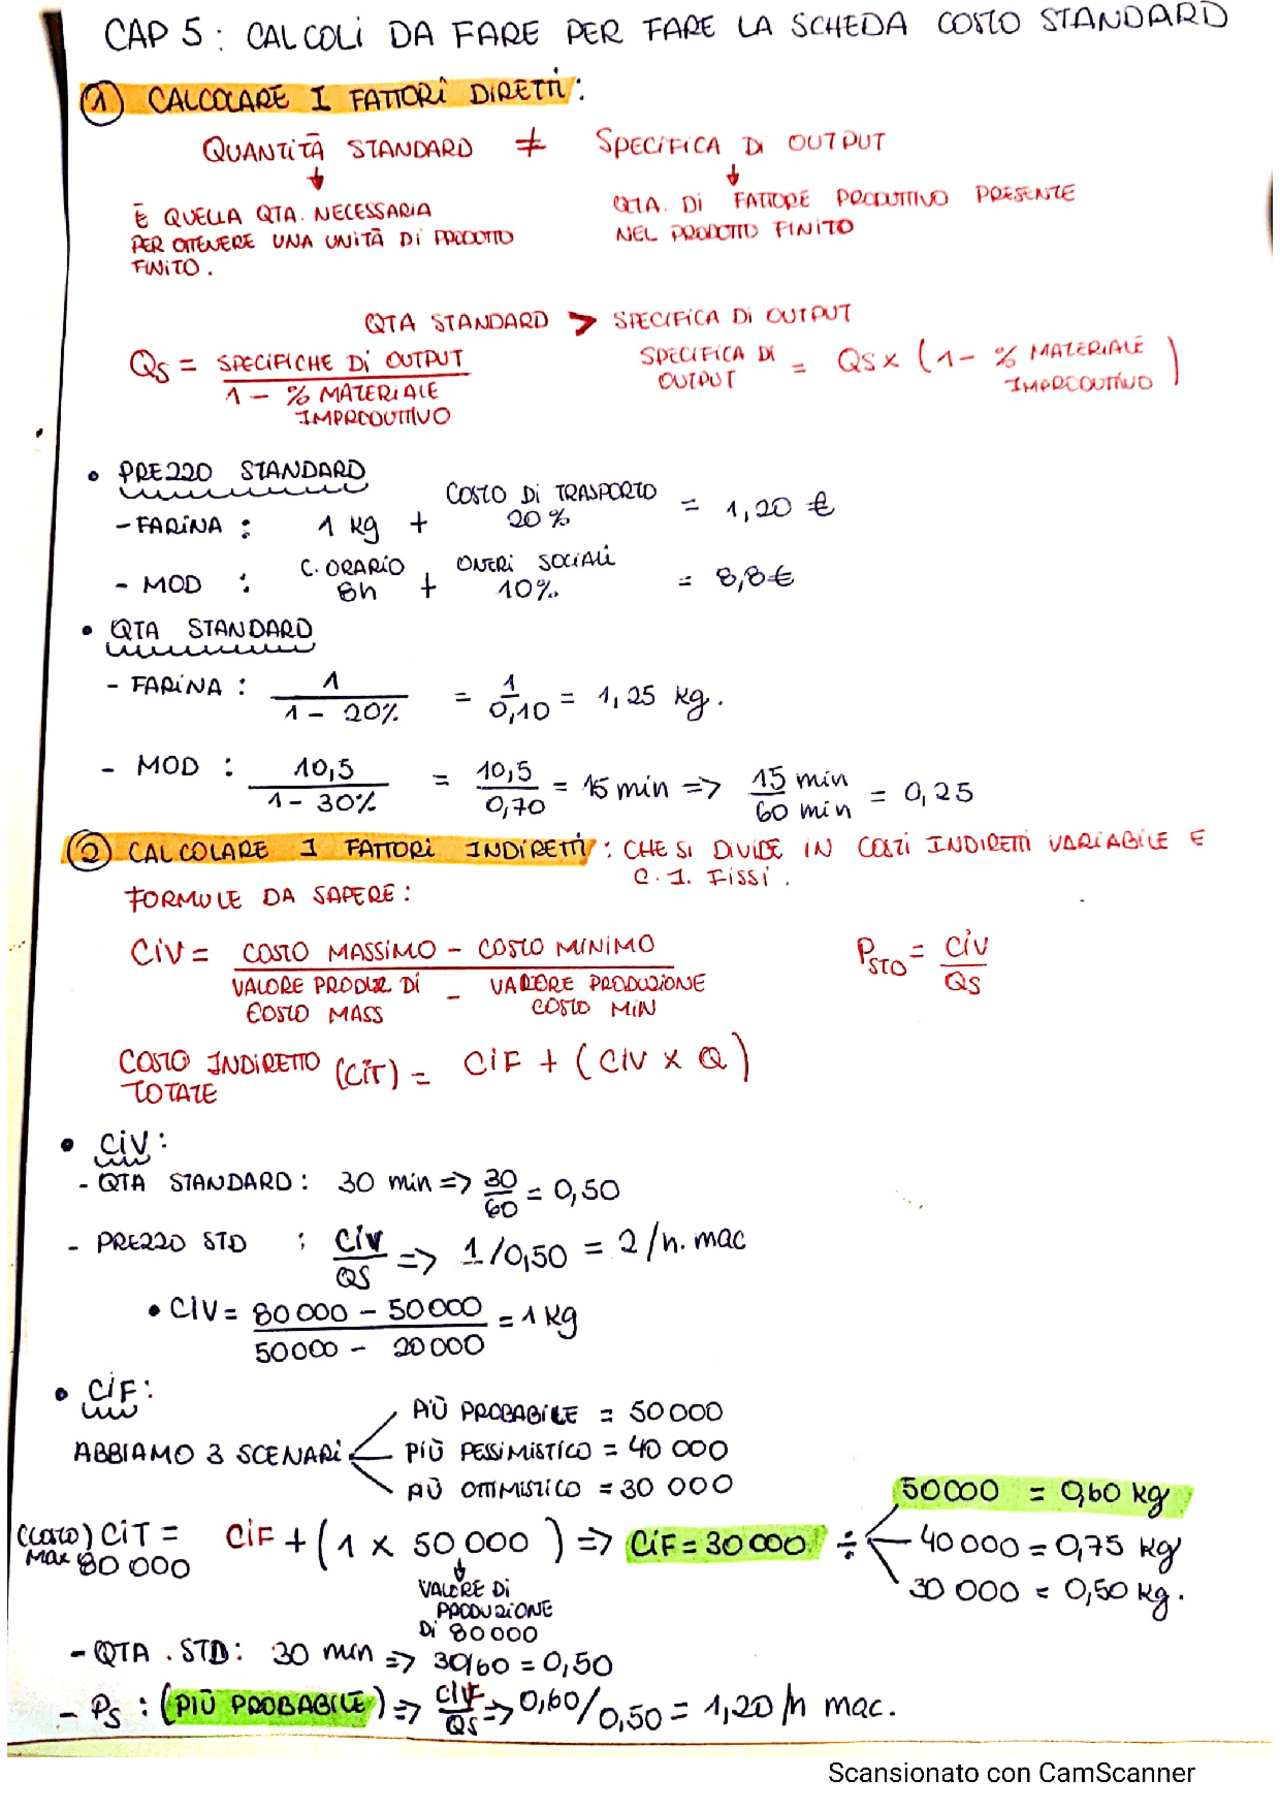 CAP 5: CALCOLI DA FARE PER FARE LA SCHEDA COSTO STANDARD
① CALCOLARE I FATTORI DIRETTI:
QUANTITÀ STANDARD ≠ SPECIFICA DI OUTPUT
↓ ↓
È QUELLA QTA. NECESSARIA PER OTTENERE UNA UNITÀ DI PRODOTTO FINITO.
QTA. DI FATTORE PRODUTTIVO PRESENTE NEL PRODOTTO FINITO
QTA STANDARD > SPECIFICA DI OUTPUT
QS = SPECIFICHE DI OUTPUT / 1 - % MATERIALE IMPRODUTTIVO
SPECIFICA DI OUTPUT = QS x (1 - % MATERIALE IMPRODUTTIVO)
• PREZZO STANDARD
- FARINA : 1 kg + COSTO DI TRASPORTO 20% = 1,20 €
- MOD : C. ORARIO 8h + ONERI SOCIALI 10% = 8,8 €
• QTA STANDARD
- FARINA : 1 / 1 - 20% = 1 / 0,10 = 1,25 kg.
- MOD : 10,5 / 1 - 30% = 10,5 / 0,70 = 15 min => 15 min / 60 min = 0,25
② CALCOLARE I FATTORI INDIRETTI: CHE SI DIVIDE IN COSTI INDIRETTI VARIABILE E
C. I. FISSI.
FORMULE DA SAPERE:
CIV = COSTO MASSIMO - COSTO MINIMO / VALORE PRODUZ DI COSTO MASS - VALORE PRODUZIONE COSTO MIN
PSTO = CIV / QS
COSTO INDIRETTO TOTALE (CIT) = CIF + (CIV x Q)
• CIV:
- QTA STANDARD: 30 min => 30 / 60 = 0,50
- PREZZO STD : CIV / QS => 1/0,50 = 2/h. mac
• CIV = 80 000 - 50 000 / 50 000 - 20 000 = 1 kg
• CIF:
ABBIAMO 3 SCENARI
PIÙ PROBABILE = 50 000
PIÙ PESSIMISTICO = 40 000
PIÙ OTTIMISTICO = 30 000
(COSTO MAX) CIT = 80 000 CIF + (1 x 50 000) => CIF = 30 000 ÷
50 000 = 0,60 kg
40 000 = 0,75 kg
30 000 = 0,50 kg.
↓
VALORE DI PRODUZIONE DI 80 000
- QTA. STD: 30 min => 30/60 = 0,50
- PS : (PIÙ PROBABILE) => CIF / QS => 0,60/0,50 = 1,20/h mac.
Scansionato con CamScanner